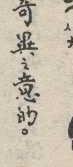 奇異之意的。